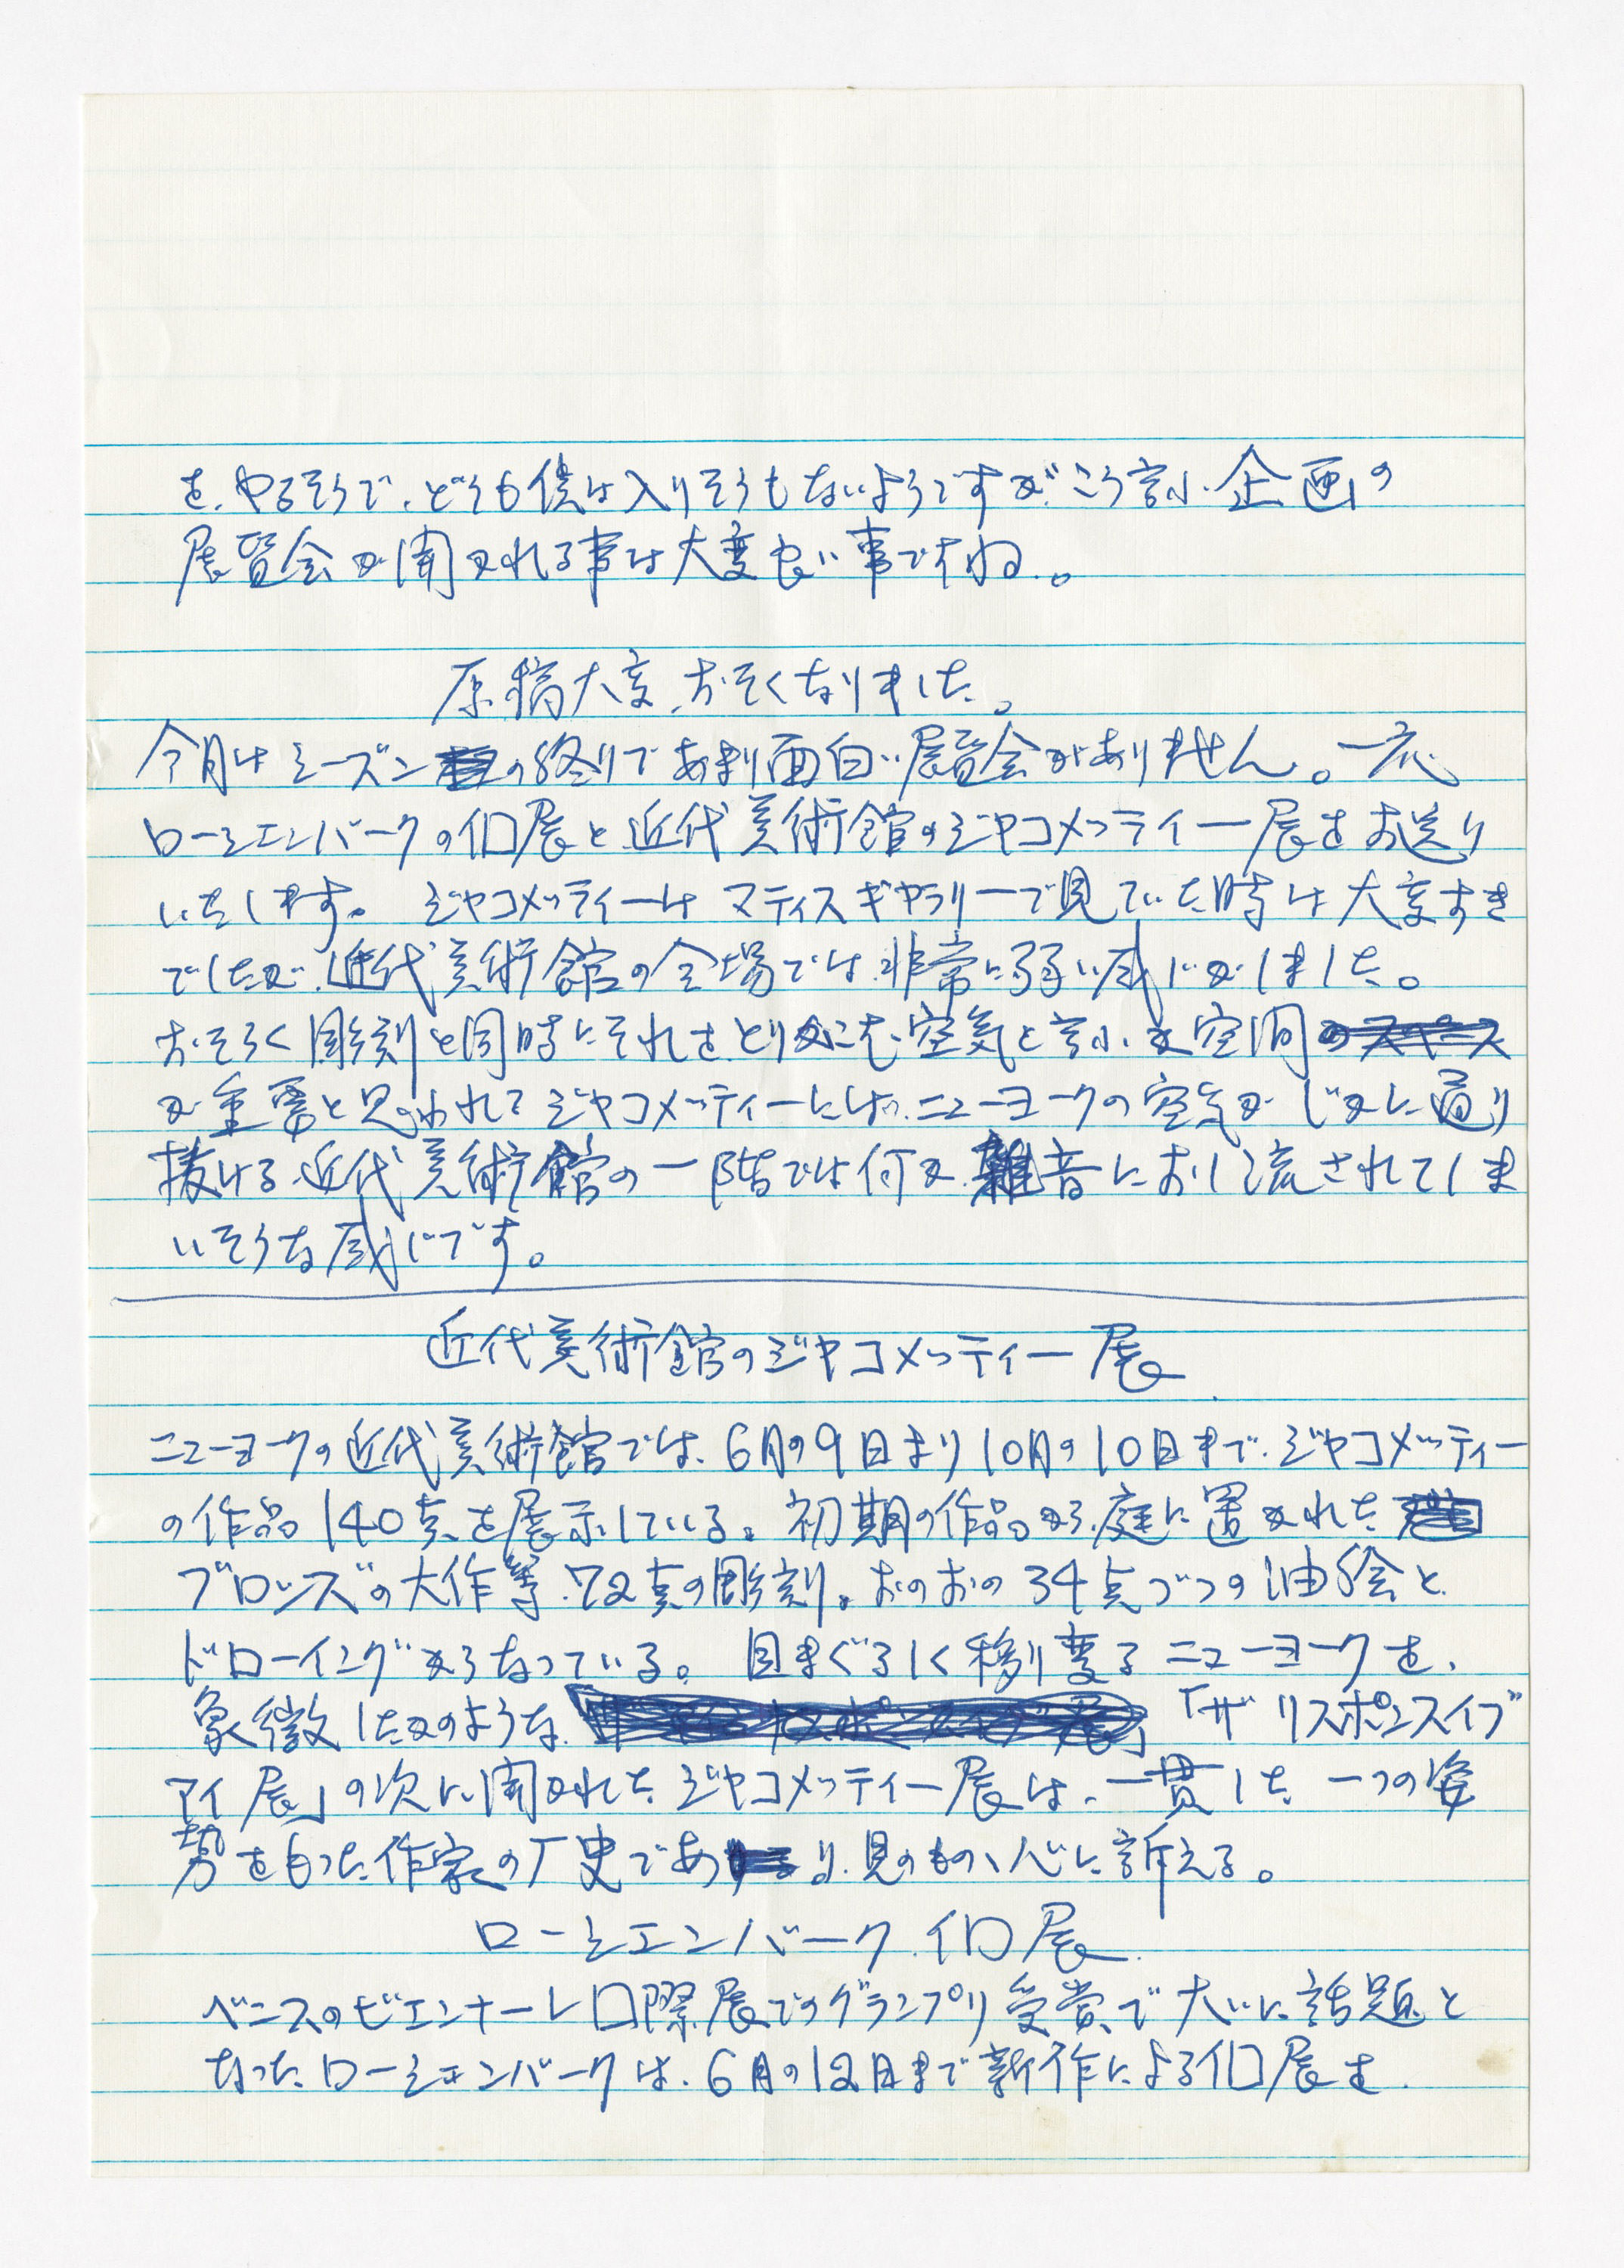 を、やるそうで、どうも僕は入りそうもないようですが、こう言ふ企画の
展覧会が開かれる事は大変良い事ですね。
原稿大変おそくなりました。
今月はシーズンの終りであまり面白い展覧会がありません。一応
ローシエンバークの個展と近代美術館のジヤコメッティー展をお送り
いたします。ジヤコメッティーはマティスギヤラリーで見ていた時は大変すき
でしたが、近代美術館の会場では非常に弱い感じがしました。
おそらく彫刻と同時にそれをとりかこむ空気と言ふか空間
が重要と思われてジヤコメッティーには、ニューヨークの空気がじかに通り
抜ける近代美術館の一階では何か雑音におし流されてしま
いそうな感じです。
近代美術館のジヤコメッティー展
ニューヨークの近代美術館では、6月の9日より10月の10日まで、ジヤコメッティー
の作品140点を展示している。初期の作品から庭に置かれた
ブロンズの大作等72点の彫刻。おのおの34点づつの油絵と
ドローイングからなっている。目まぐるしく移り変るニューヨークを、
象徴したかのような「ザ リスポンスイブ
アイ展」の次に開かれたジヤコメッティー展は、一貫した一つの姿
勢をもった作家の厂史であり、見るもの、心に訴える。
ローシエンバーク個展
ベニスのビエンナーレ囗際展でのグランプリ受賞で大いに話題と
なったローシエンバークは、6月の12日まで新作による個展を